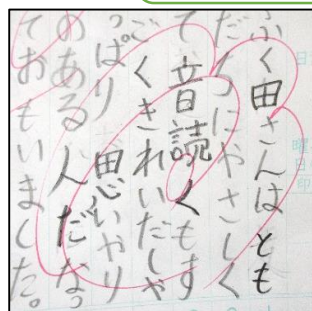 ふく田さんは とも
だちにやさしく
て 音読くもす
ごくきれいだしや
っぱり 思いやり
のある人だなっ
ておもいました。